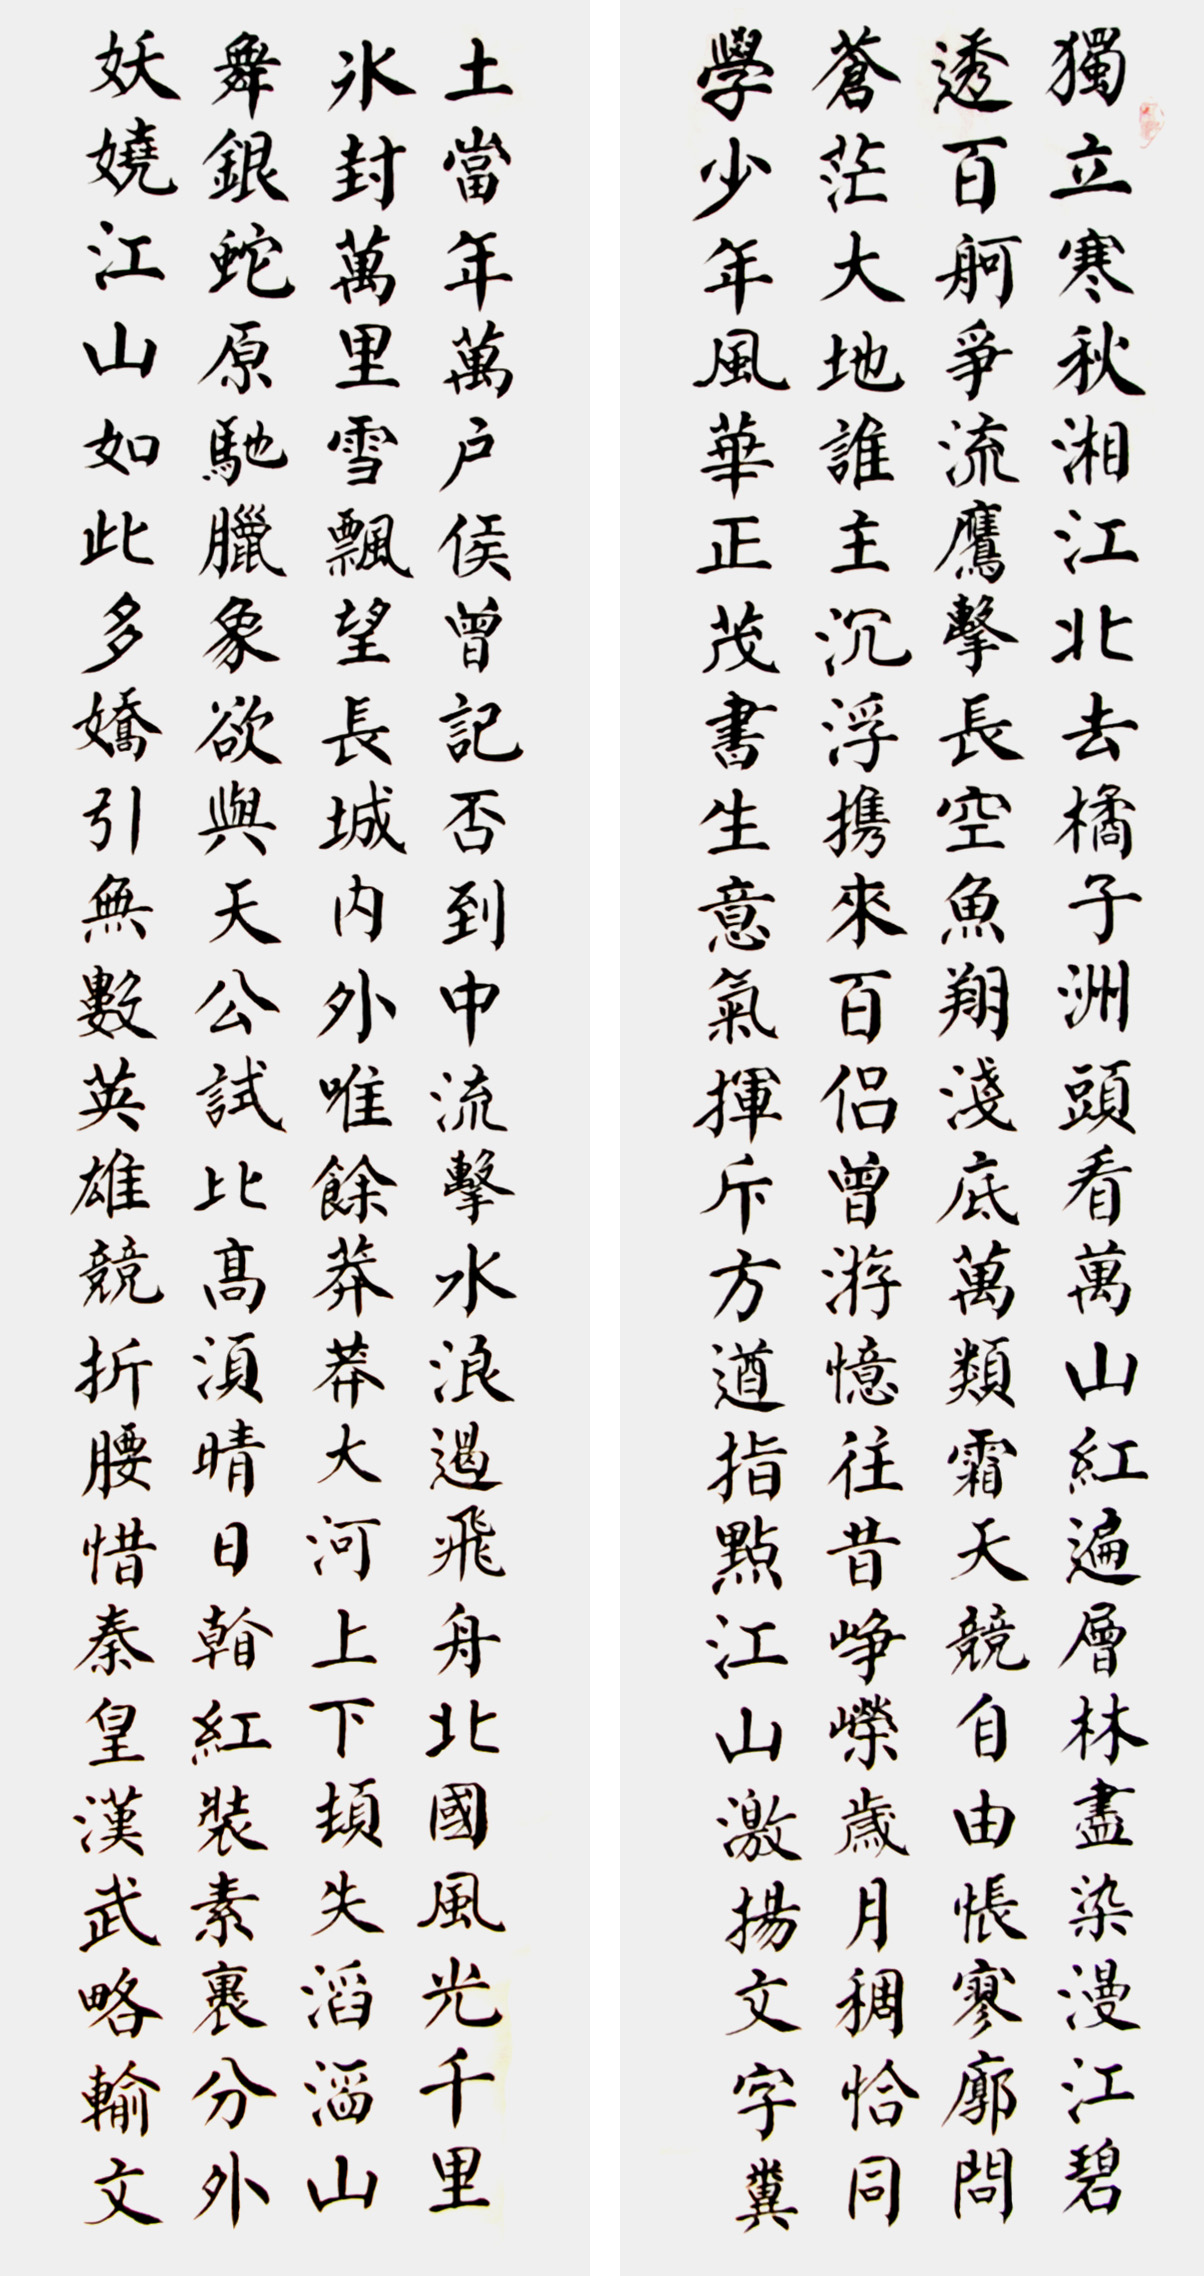 獨立寒秋湘江北去橘子洲頭看萬山紅遍層林盡染漫江碧
透百舸爭流鷹擊長空魚翔淺底萬類霜天競自由悵寥廓問
蒼茫大地誰主沉浮攜來百侣曾游憶往昔崢嶸歲月稠恰同
學少年風華正茂書生意氣揮斥方遒指點江山激揚文字糞
土當年萬户侯曾記否到中流擊水浪遏飛舟北國風光千里
冰封萬里雪飄望長城内外唯餘莽莽大河上下頓失滔滔山
舞銀蛇原馳臘象欲與天公試比高須晴日看紅裝素裹分外
妖嬈江山如此多嬌引無數英雄競折腰惜秦皇漢武略輸文